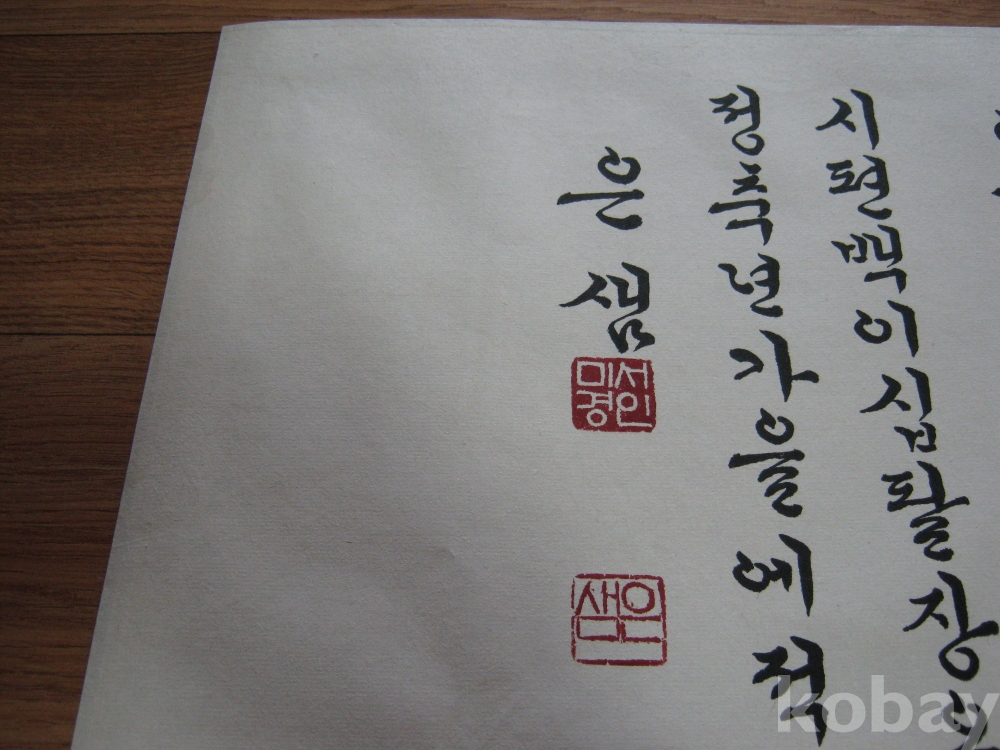 시편백이십팔장
정축년가을에적
은샘
서인
미경
은샘
kobay